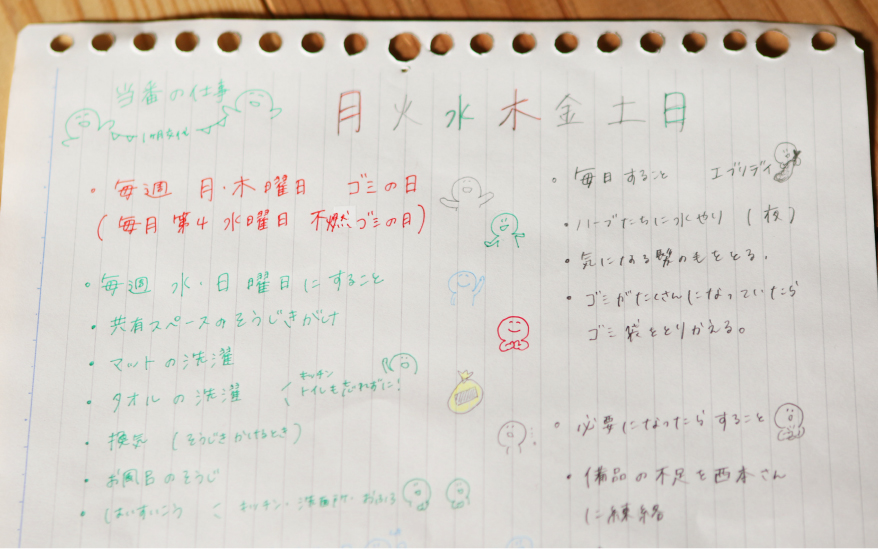 当番の仕事
月 火 水 木 金 土 日
・毎週 月・木曜日 ゴミの日
(毎月 第4 水曜日 不燃ゴミの日)
・毎週 水・日 曜日にすること
・共有スペースのそうじきがけ
・マットの洗濯
・タオルの洗濯
キッチン
トイレも忘れずに!
・換気 (そうじきかけるとき)
・お風呂のそうじ
・はいすいこう
キッチン・洗面所・おふろ
・毎日すること エブリディ
・ハーブたちに水やり (夜)
・気になる髪の毛をとる.
・ゴミがたくさんになっていたら
ゴミ袋をとりかえる。
・必要になったらすること
・備品の不足を西本さん
に練絡